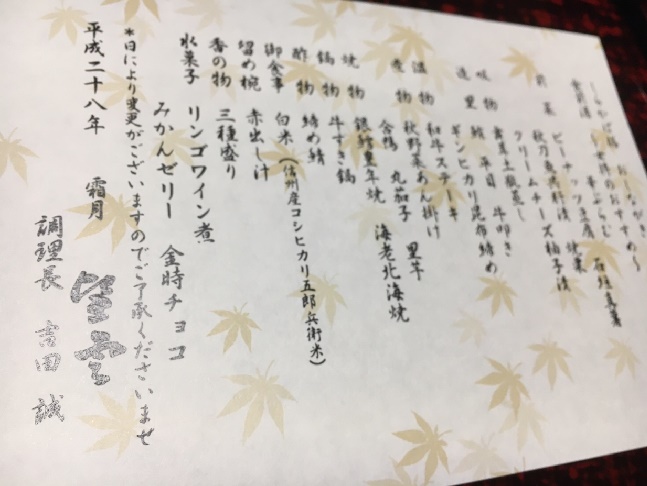 おしながき
前菜 ピーナッツ豆腐
秋刀魚
クリームチーズ柚子漬
吸物
造里 鯛 平目 牛叩き
ギンヒカリ昆布締め
温物 和牛ステーキ
秋野菜あん掛け 里芋
煮物 合鴨 丸茄子 海老北海焼
焼物
鍋物 牛すき鍋
酢物 締め鯖
御食事 白米(信州産コシヒカリ五郎兵衛米)
留め椀 赤出し汁
香の物 三種盛り
水菓子 リンゴワイン煮
みかんゼリー 金時チョコ
*日により変更がございますのでご了承くださいませ
平成二十八年 霜月
調理長 吉田 誠